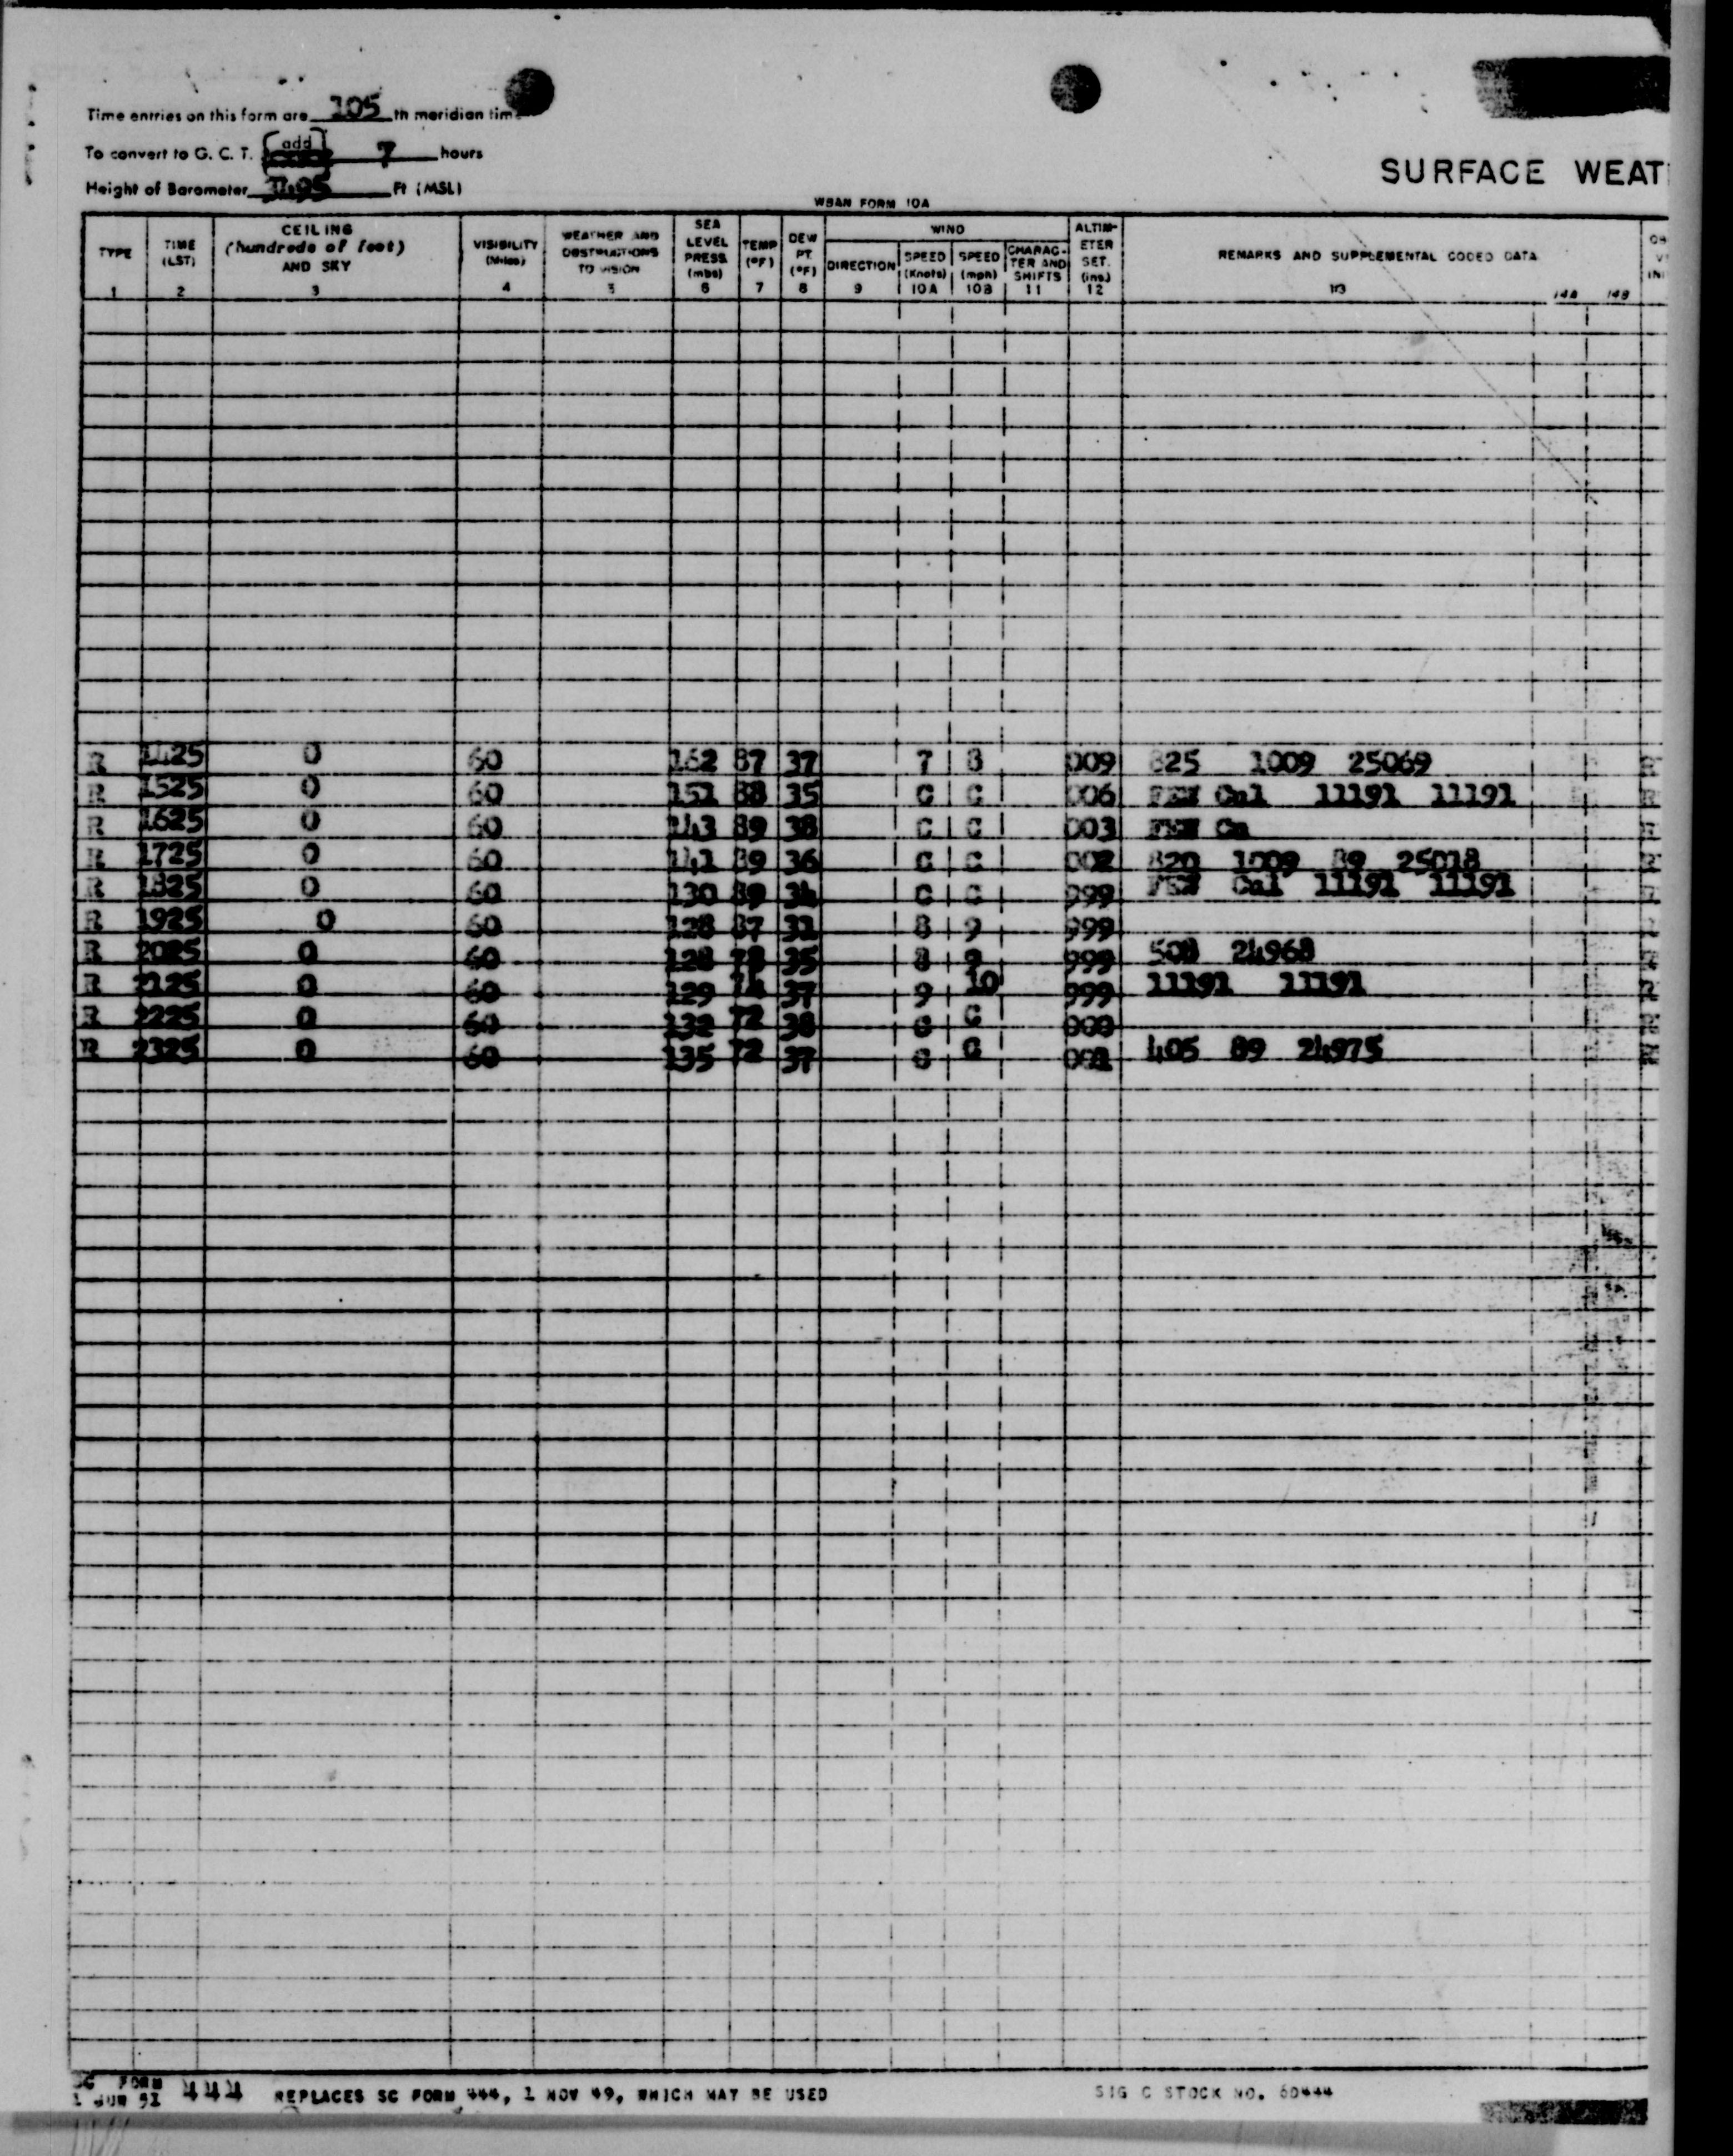 Time entries on this form are 105 th meridian tim
To convert to G. C. T. [add] 7 hours
Height of Barometer Ft (MSL)
SURFACE WEAT
WBAN FORM 10A
TYPE 1
TIME (LST) 2
CEILING (hundreds of feet) AND SKY 3
VISIBILITY (Miles) 4
WEATHER AND OBSTRUCTIONS TO VISION 5
SEA LEVEL PRESS. (mbs) 6
TEMP (°F) 7
DEW PT. (°F) 8
WIND
DIRECTION 9
SPEED (Knots) 10A
SPEED (mph) 10B
CHARAC- TER AND SHIFTS 11
ALTIM- ETER SET. (ins.) 12
REMARKS AND SUPPLEMENTAL CODED DATA 13
14A 14B
R 1425 0 60 162 87 37 7 8 009 825 1009 25069
R 1525 0 60 151 88 35 C C 006 FEW Cu1 11191 11191
R 1625 0 60 143 89 38 C C 003 FEW Cu
R 1725 0 60 141 89 36 C C 002 820 1009 89 25018
R 1825 0 60 130 89 34 C C 999 FEW Cu1 11191 11191
R 1925 0 60 128 87 31 8 9 999
R 2025 0 60 128 78 35 8 9 999 508 24968
R 2125 0 60 129 74 37 9 10 999 11191 11191
R 2225 0 60 132 72 38 C C 000
R 2325 0 60 135 72 37 C C 001 405 89 24975
SC FORM 1 JUN 51 444 REPLACES SC FORM 444, 1 NOV 49, WHICH MAY BE USED
SIG C STOCK NO. 60444